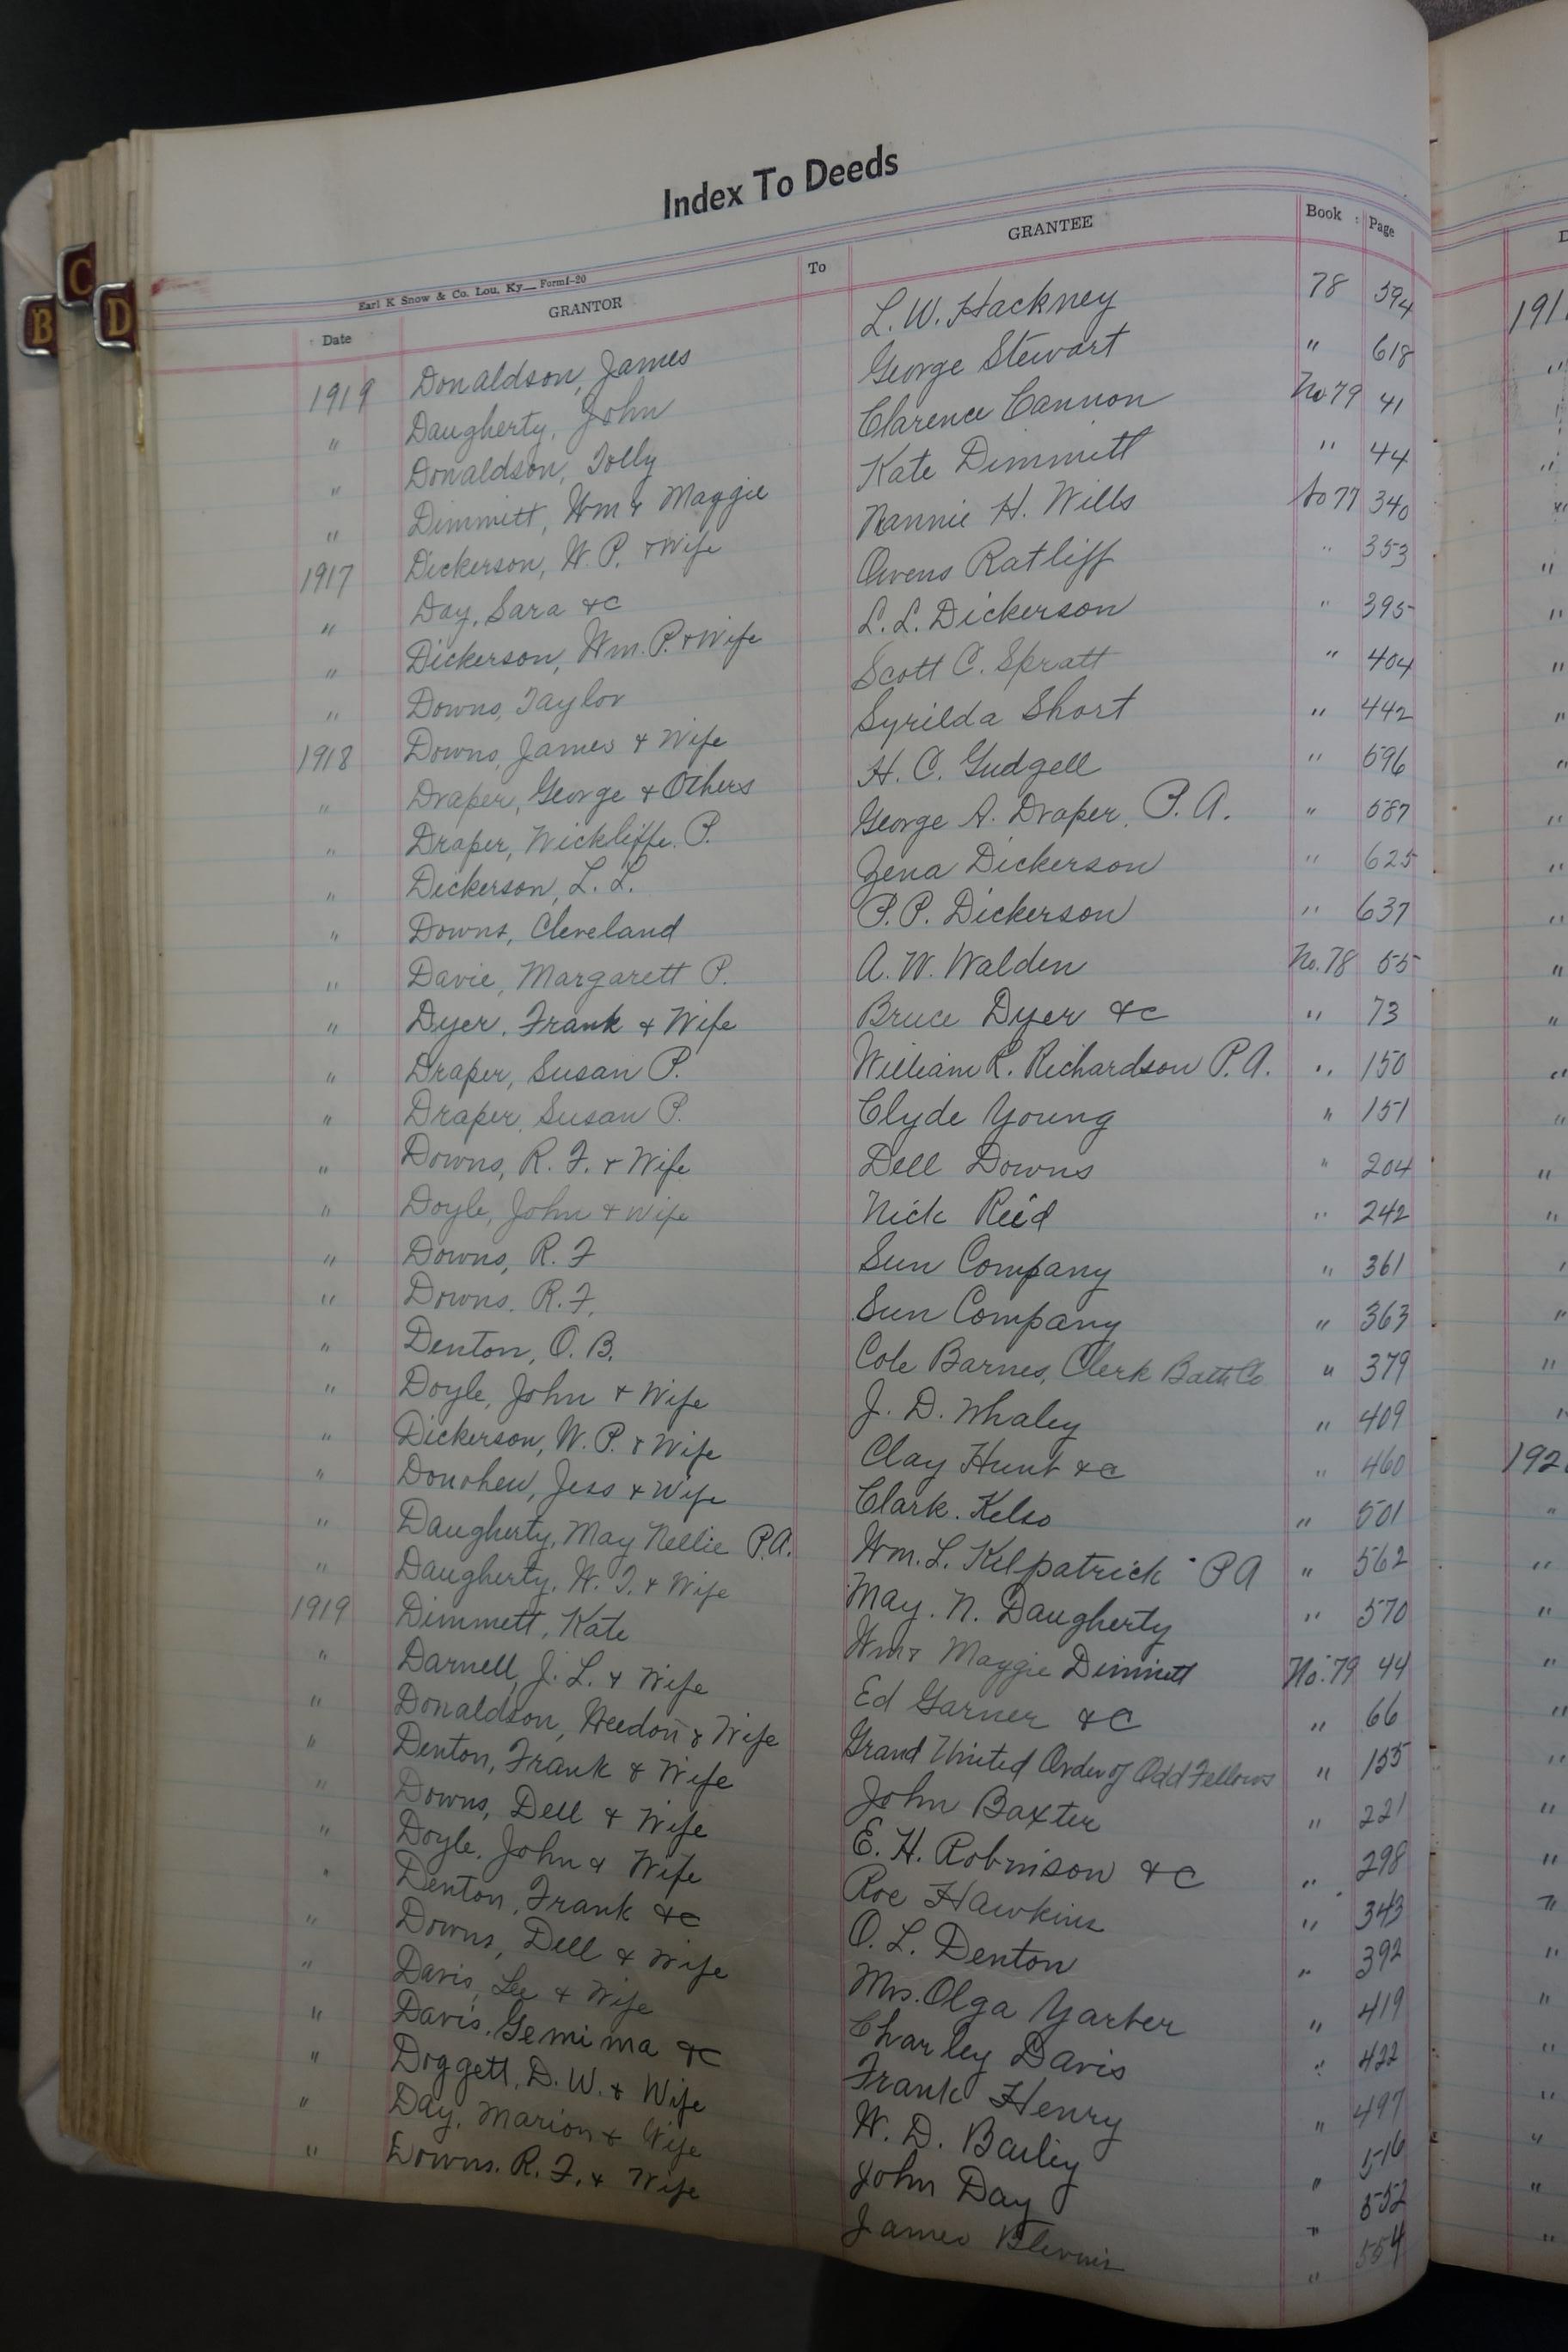 Index To Deeds
Earl K Snow & Co. Lou, Ky— Form f-20
Date GRANTOR To GRANTEE Book Page
1919 Donaldson, James L. W. Hackney 78 594
" Daugherty, John George Stewart " 618
" Donaldson, Tolly Clarence Cannon No 79 41
" Dimmitt, Wm & Maggie Kate Dimmitt " 44
1917 Dickerson, W. P. & Wife Nannie H. Wills No 77 340
" Day, Sara &C Owens Ratliff " 353
" Dickerson, Wm. P. & Wife L. L. Dickerson " 395
" Downs, Taylor Scott C. Spratt " 404
1918 Downs, James & Wife Syrilda Short " 442
" Draper, George & Others H. C. Gudgell " 596
" Draper, Wickliffe. P. George A. Draper, P. A. " 587
" Dickerson, L. L. Zena Dickerson " 625
" Downs, Cleveland P. P. Dickerson " 637
" Davie, Margarett P. A. W. Walden No. 78 55
" Dyer, Frank & Wife Bruce Dyer &C " 73
" Draper, Susan P. William R. Richardson P. A. " 150
" Draper, Susan P. Clyde Young " 151
" Downs, R. F. & Wife Dell Downs " 204
" Doyle, John & Wife Nick Reid " 242
" Downs, R. F Sun Company " 361
" Downs. R. F. Sun Company " 363
" Denton, O. B. Cole Barnes, Clerk Bath Co " 379
" Doyle, John & Wife J. D. Whaley " 409
" Dickerson, W. P. & Wife Clay Hunt &C " 460
" Donohew, Jess & Wife Clark. Kelso " 501
" Daugherty, May Nellie P.A. Wm. L. Kilpatrick P A " 562
" Daugherty, W. T. & Wife May. N. Daugherty " 570
1919 Dimmett, Kate Wm & Maggie Dimmett No. 79 44
" Darnell, J. L. & Wife Ed Garner &C " 66
" Donaldson, Weedon & Wife Grand United Order of Odd Fellows " 155
" Denton, Frank & Wife John Baxter " 221
" Downs, Dell & Wife E. H. Robinson &C " 298
" Doyle, John & Wife Roe Hawkins " 343
" Denton, Frank &C O. L. Denton " 392
" Downs, Dell & Wife Mrs. Olga Yarber " 419
" Davis, Lee & Wife Charley Davis " 422
" Davis, Gemima &C Frank Henry " 497
" Doggett, D. W. & Wife W. D. Bailey " 516
" Day, Marion & Wife John Day " 552
" Downs. R. F. & Wife James Blevins " 554
B
C
D